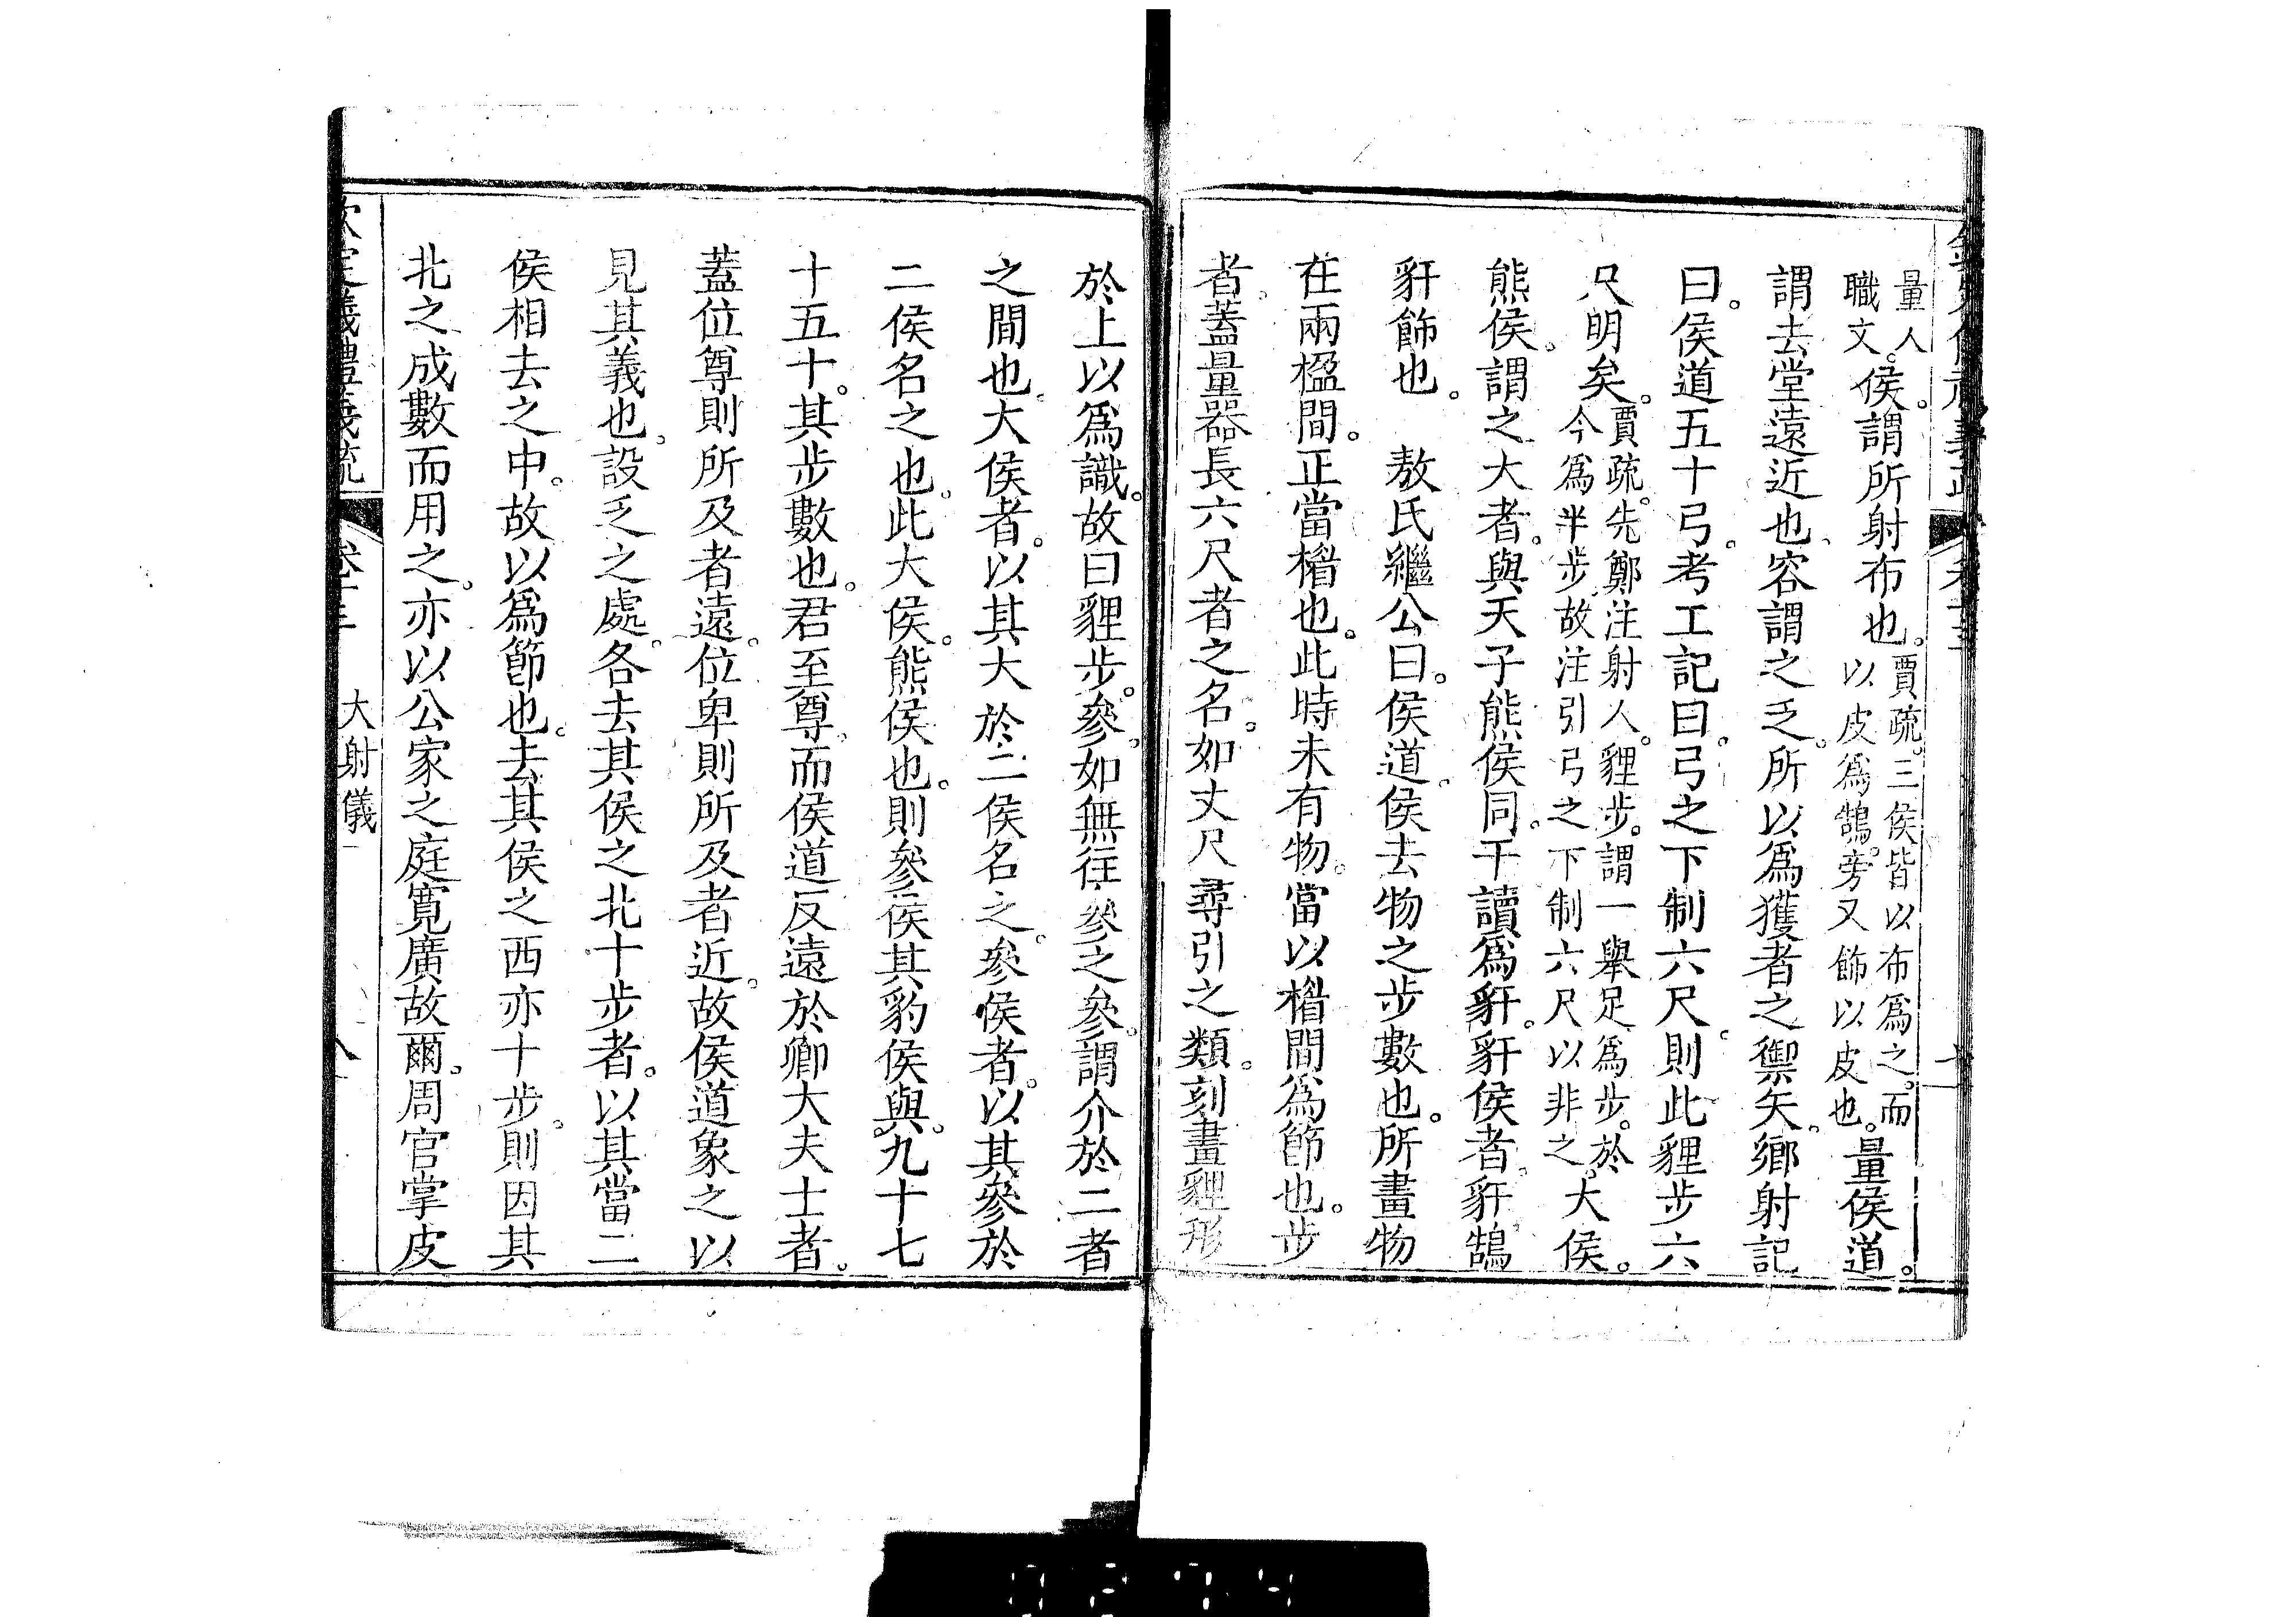 量人
職文。侯。謂所射布也。賈疏。三侯皆以布爲之。而
以皮爲鵠。旁又飾以皮也。量侯道。
謂去堂遠近也。容謂之乏。所以爲獲者之禦矢。鄉射記
曰。侯道五十弓。考工記曰。弓之下制六尺。則此貍步六
尺明矣。賈疏。先鄭注射人。貍步。謂一舉足爲步。於
今爲半步。故注引弓之下制六尺以非之。大侯。
熊侯。謂之大者。與天子熊侯同。干讀爲豻。豻侯者。豻鵠
豻飾也。 敖氏繼公曰。侯道。侯去物之步數也。所畫物
在兩楹間。正當楣也。此時未有物。當以楣間爲節也。步
者。蓋量器長六尺者之名。如丈尺尋引之類。刻畫貍形
於上以爲識。故曰貍步。參。如無往參之參。謂介於二者
之間也。大侯者。以其大於二侯名之。參侯者。以其參於
二侯名之也。此大侯。熊侯也。則參侯其豹侯與。九十七
十五十。其步數也。君至尊。而侯道反遠於卿大夫士者。
蓋位尊則所及者遠。位卑則所及者近。故侯道象之以
見其義也。設乏之處。各去其侯之北十步者。以其當二
侯相去之中。故以爲節也。去其侯之西亦十步。則因其
北之成數而用之。亦以公家之庭寬廣故爾。周官掌皮
大射儀一